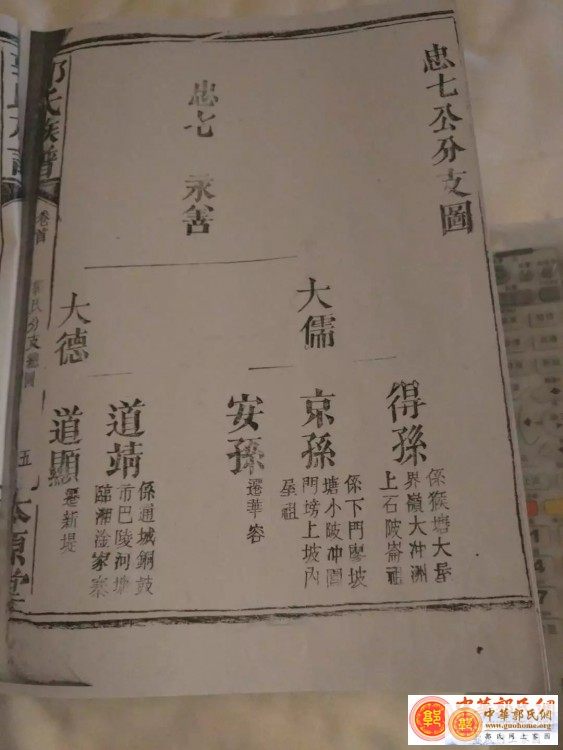 忠七公分支圖
忠七 永舍
大儒
大德
得孫
係猴塘大屋
界嶺大冲洲
上石陂崙祖
京孫
係下門壆坡
塘小陂冲閭
門塝上坡內
屋祖
安孫
遷華容
道靖
係通城銅鼓
市巴陵河塘
臨湘淦家寨
道顯
遷新堤
郭氏族譜
卷首
郭氏分支總圖
五
本源堂
中華郭氏網
www.guohome.com
郭氏網上家園